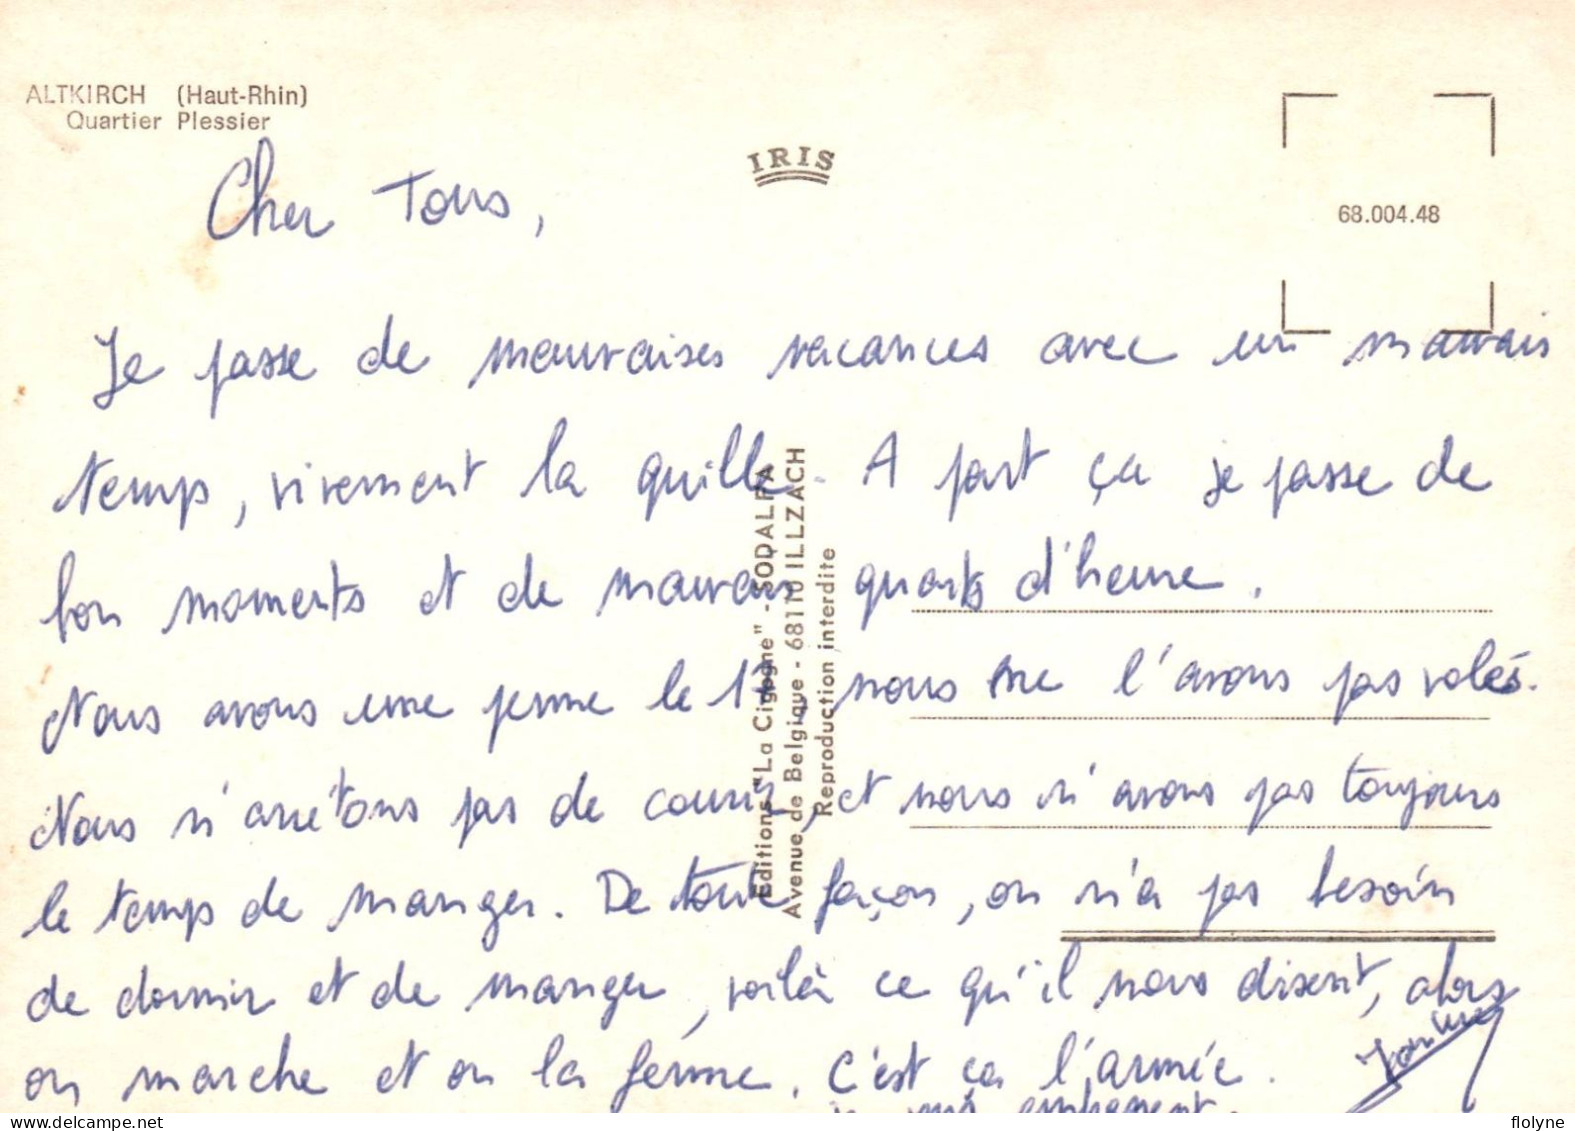 ALTKIRCH (Haut-Rhin)
Quartier Plessier
IRIS
68.004.48
Cher Tous,
Je passe de mauvaises vacances avec un mauvais
temps, vivement la quille. A part ça je passe de
bon moments et de mauvais quarts d'heure.
Nous avons une perme le 17 nous ne l'avons pas volés.
Nous n'arrêtons pas de courir, et nous n'avons pas toujours
le temps de manger. De toute façon, on n'a pas besoin
de dormir et de manger, voilà ce qu'il nous disent, alors
on marche et on la ferme. C'est ça l'armée.
Editions "La Cigogne" - SODALFA
Avenue de Belgique - 68110 ILLZACH
Reproduction interdite
delcampe.net
flolyne